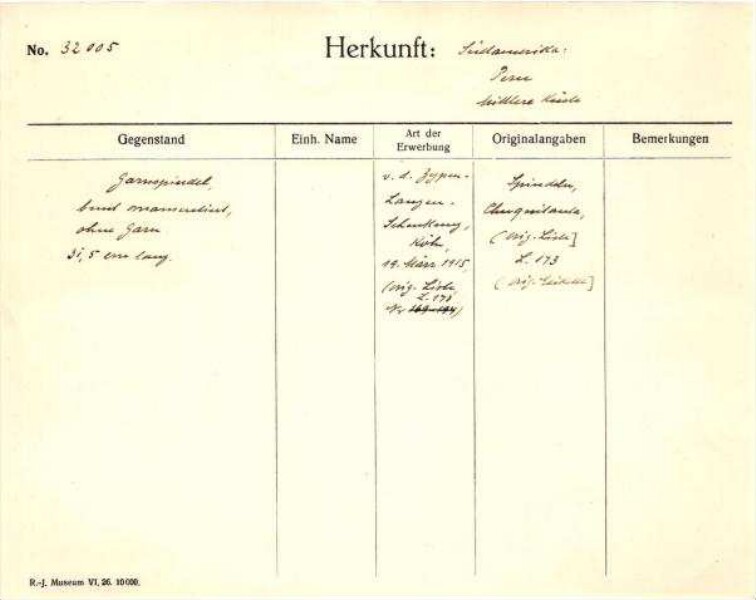 No. 32005 Herkunft: Südamerika.
Peru
Mittlere Küste
Gegenstand Einh. Name Art der Erwerbung Originalangaben Bemerkungen
Garnspindel,
bunt ornamentiert,
ohne Garn
31,5 cm lang.
v. d. Zypen-
Langen-
Schenkung,
Köln,
19. März 1915,
(orig. Liste
L. 173
Nr. 169-194)
Spindeln,
(orig. Liste]
L. 173
(orig. Etikette]
R.-J. Museum VI, 26. 10000.